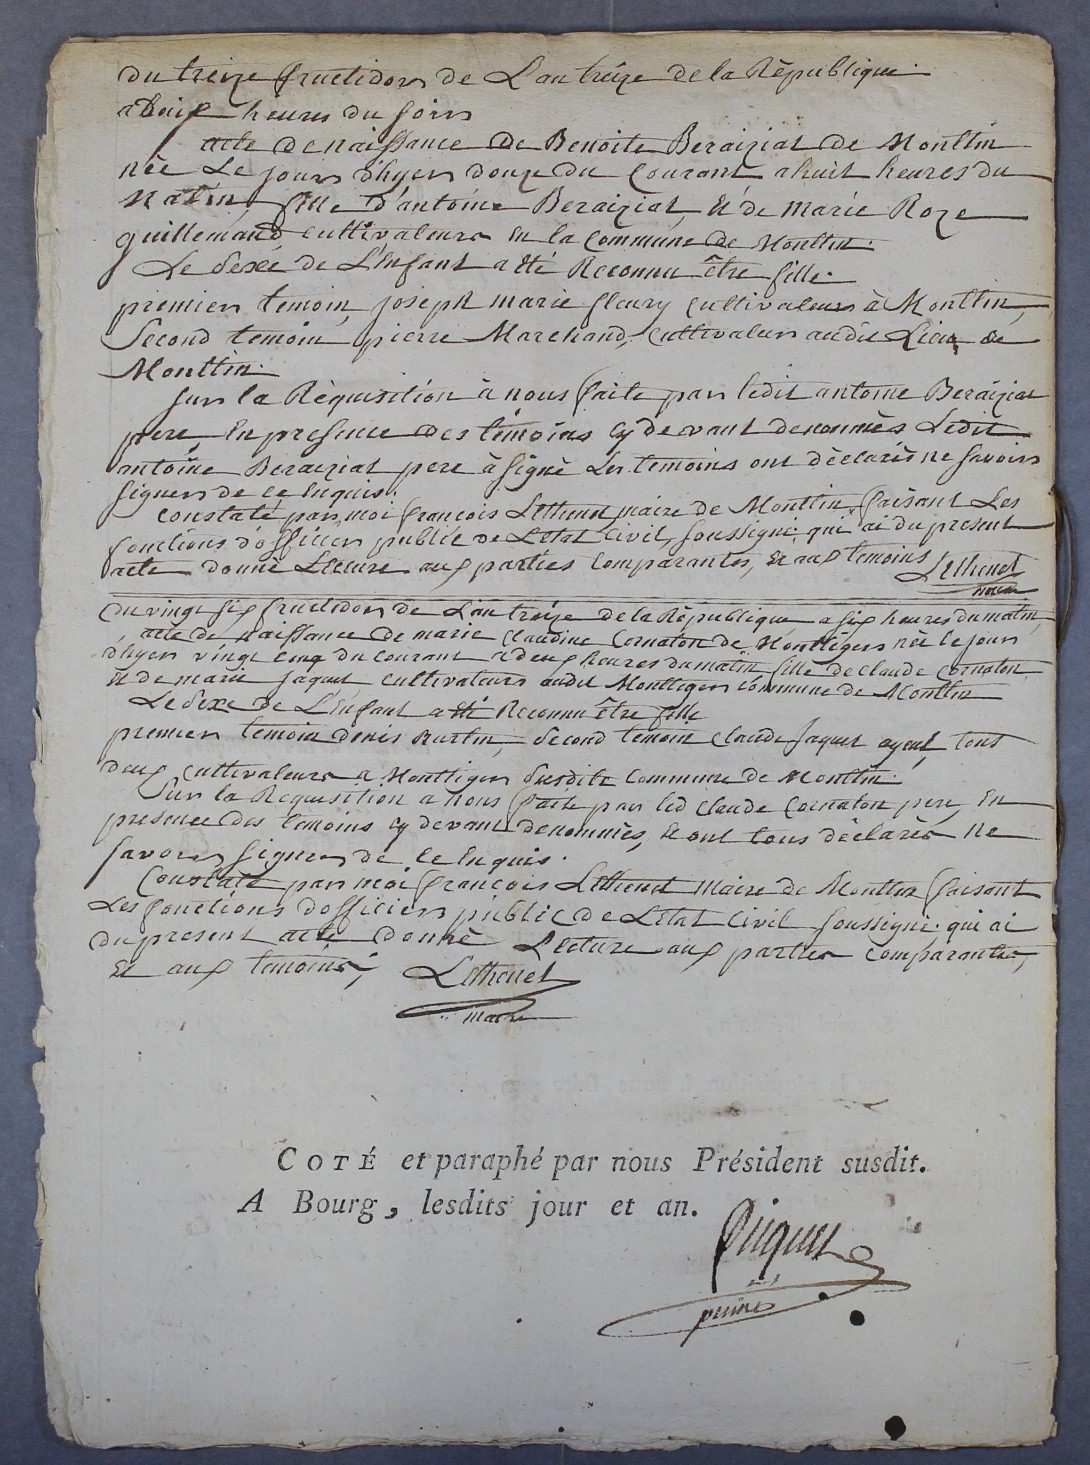 du treize fructidor de L'an treize de la République
a huit heures du soir
acte de naissance de Benoite Beraiziat de Montlin
née Le jour d'hyer douze du Courant a huit heures du
Matin, fille d'antoine Beraiziat, et de Marie Roze
guillemaud cultivateurs en la Commune de Montlin.
Le Sexe de L'Enfant a eté Reconnu être fille.
premier temoin, joseph marie fleury cultivateur à Montlin,
Second temoin pierre Marchand, Cultivateur audit Lieu de
Montlin.
sur la Réquisition à nous faite par ledit antoine Beraiziat
pere, En presence des témoins cy devant denommés Ledit
antoine Beraiziat pere à signé Les temoins ont déclarés ne savoir
signer de ce Enquis.
Constaté par moi françois Lethenet maire de Montlin faisant Les
fonctions d'officier public de L'etat Civil, soussigné qui ai du present
acte donné Lecture aux parties Comparantes, et aux temoins Lethenet
maire
du vingt six fructidor de L'an treize de la République a six heures du matin,
acte de naissance de marie Claudine Cornaton de Montliger née le jour
d'hyer vingt cinq du courant a deux heures du matin fille de Claude Cornaton
et de marie jaquet cultivateurs audit Montliger Commune de Montlin
Le Sexe de L'Enfant a eté Reconnu être fille
premier temoin denis Second temoin Claude jaquet ayeul, tous
deux cultivateurs a Montliger susdite Commune de Montlin.
Sur la Requisition a nous faite par led Claude Cornaton pere, En
presence des temoins cy devant denommés, et ont tous déclarés ne
savoir signer de ce Enquis.
Constaté par moi françois Lethenet maire de Montlin faisant
Les fonctions d'officier public de L'etat Civil soussigné qui ai
du present acte donné Lecture aux parties comparantes,
et aux temoins, Lethenet
maire
COTÉ et paraphé par nous Président susdit.
A Bourg, lesdits jour et an.